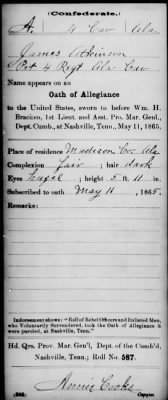 (Confederate.)
A. 4 Cav Ala
James Atkinson
Pvt 4 Regt Ala Cav
Name appears on an
Oath of Allegiance
to the United States, sworn to before Wm. H.
Bracken, 1st Lieut. and Asst. Pro. Mar. Genl.,
Dept. Cumb., at Nashville, Tenn., May 11, 1865.
Place of residence Madison Co. Ala
Complexion fair ; hair dark
Eyes hazel ; height 5 ft. 11 in.
Subscribed to oath May 11 , 1865.
Remarks:
Indorsement shows: "Roll of Rebel Officers and Enlisted Men,
who Voluntarily Surrendered, took the Oath of Allegiance &
were paroled, at Nashville, Tenn."
Hd. Qrs. Prov. Mar. Gen'l, Dept. of the Cumb'd,
Nashville, Tenn.; Roll No. 587.
Annie Cooke
Copyist.